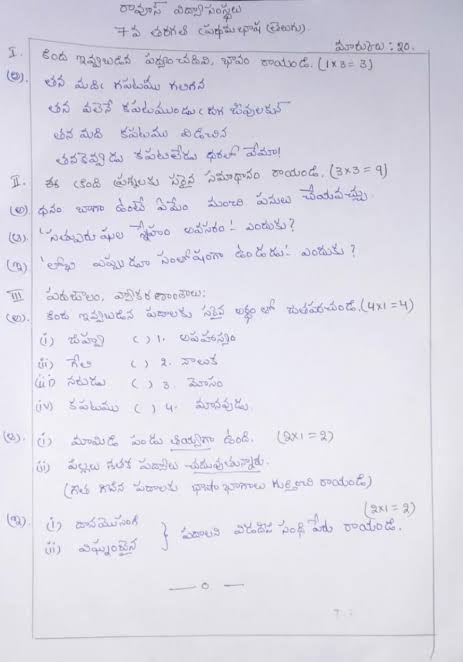 రావూస్ విద్యాసంస్థలు
7వ తరగతి (ప్రథమభాష తెలుగు)
మార్కులు : 20.
I. కింది ఇవ్వబడిన పద్యం చదివి, భావం రాయండి. (1x3=3)
(అ). తన మది కపటము గలిగిన
తన వలెనే కపటముండు దగ జీవులకున్
తన మది కపటము విడచిన
తనకెవ్వడు కపటిలేడు ధరలో వేమా!
II. ఈ కింది ప్రశ్నలకు సరైన సమాధానం రాయండి. (3x3=9)
(అ) ధనం బాగా ఉంటే ఏమేం మంచి పనులు చేయవచ్చు.
(ఆ) 'సత్పురుషుల స్నేహం అవసరం'! ఎందుకు?
(ఇ) 'లోభి ఎప్పుడూ సంతోషంగా ఉండడు'! ఎందుకు?
III పదజాలం, వ్యాకరణాంశాలు:
(అ). కింది ఇవ్వబడిన పదాలకు సరైన అర్థం లో జతపరచండి. (4x1=4)
(i) జిహ్వ ( ) 1. అపహాస్యం
(ii) గేలి ( ) 2. నాలుక
(iii) నరుడు ( ) 3. మోసం
(iv) కపటము ( ) 4. మానవుడు
(ఆ). (i) మామిడి పండు తియ్యగా ఉంది. (2x1=2)
(ii) పిల్లలు గీతిక పద్యాలు చదువుతున్నారు.
(గీత గీసిన పదాలకు భాషా భాగాలు గుర్తించి రాయండి)
(2x1=2)
(ఇ). (i) దానమొసంగ } పదాలని విడదీసి సంధి పేరు రాయండి.
(ii) విఘ్నంబైన
— 0 —